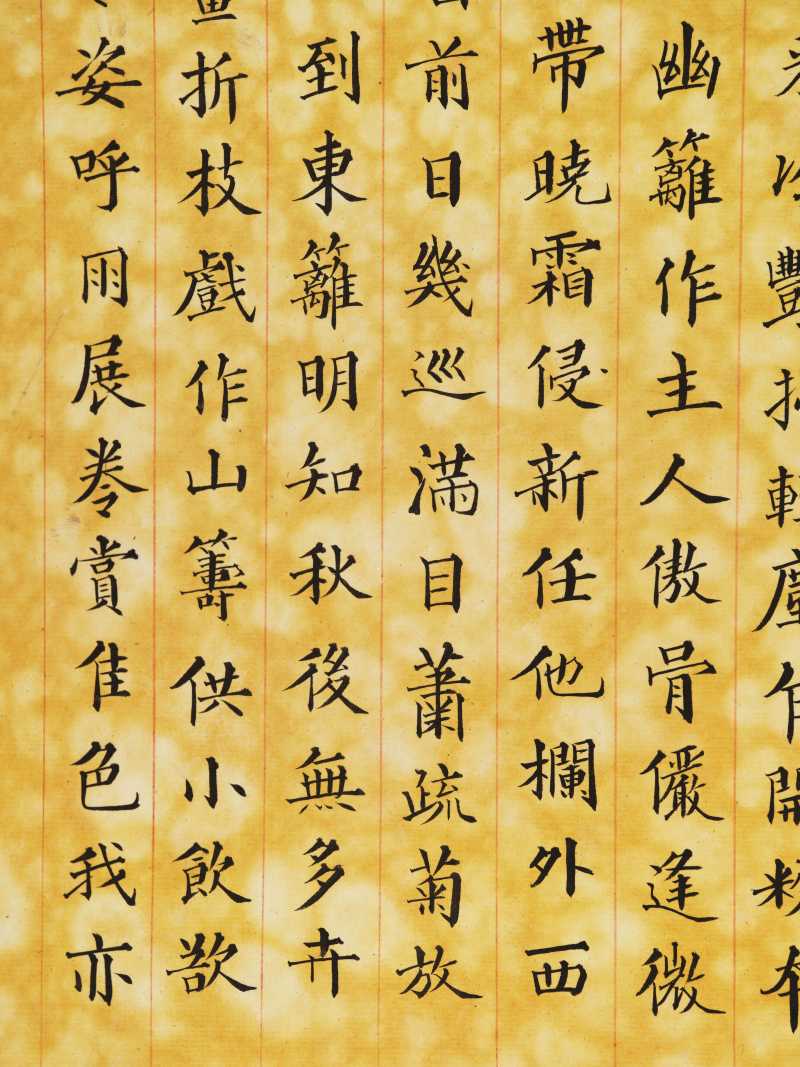 冷豔輕塵自開粉
幽籬作主人傲骨儼逢微
帶曉霜侵新任他欄外西
前日幾巡滿目蕭疏菊放
到東籬明知秋後無多卉
折枝戲作山籌供小飲
姿呼展卷賞佳色我亦